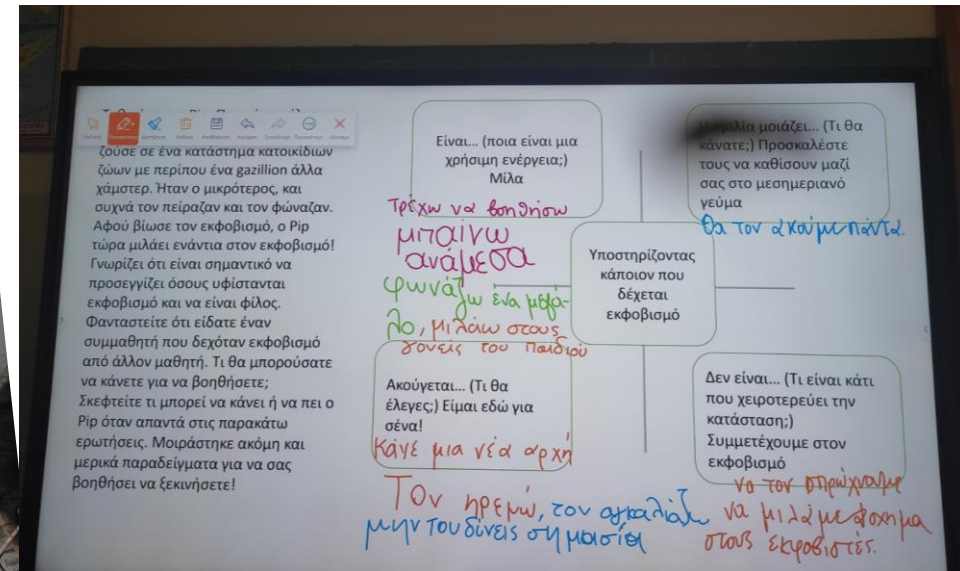 ζούσε σε ένα κατάστημα κατοικίδιων
ζώων με περίπου ένα gazillion άλλα
χάμστερ. Ήταν ο μικρότερος, και
συχνά τον πείραζαν και τον φώναζαν.
Αφού βίωσε τον εκφοβισμό, ο Pip
τώρα μιλάει ενάντια στον εκφοβισμό!
Γνωρίζει ότι είναι σημαντικό να
προσεγγίζει όσους υφίστανται
εκφοβισμό και να είναι φίλος.
Φανταστείτε ότι είδατε έναν
συμμαθητή που δεχόταν εκφοβισμό
από άλλον μαθητή. Τι θα μπορούσατε
να κάνετε για να βοηθήσετε;
Σκεφτείτε τι μπορεί να κάνει ή να πει ο
Pip όταν απαντά στις παρακάτω
ερωτήσεις. Μοιράστηκε ακόμη και
μερικά παραδείγματα για να σας
βοηθήσει να ξεκινήσετε!
Είναι... (ποια είναι μια
χρήσιμη ενέργεια;)
Μίλα
Τρέχω να βοηθήσω
μπαίνω
ανάμεσα
φωνάζω ένα μεγά-
λο, μιλάω στους
γονείς του παιδιού
μοιάζει... (Τι θα
κάνατε;) Προσκαλέστε
τους να καθίσουν μαζί
σας στο μεσημεριανό
γεύμα
Θα τον ακούμε πάντα.
Υποστηρίζοντας
κάποιον που
δέχεται
εκφοβισμό
Ακούγεται... (Τι θα
έλεγες;) Είμαι εδώ για
σένα!
Κάνε μια νέα αρχή
Τον ηρεμώ, τον αγκαλιάζω
μην του δίνεις σημασία
Δεν είναι... (Τι είναι κάτι
που χειροτερεύει την
κατάσταση;)
Συμμετέχουμε στον
εκφοβισμό
να τον σπρώχναμε
να μιλάμε άσχημα
στους εκφοβιστές.